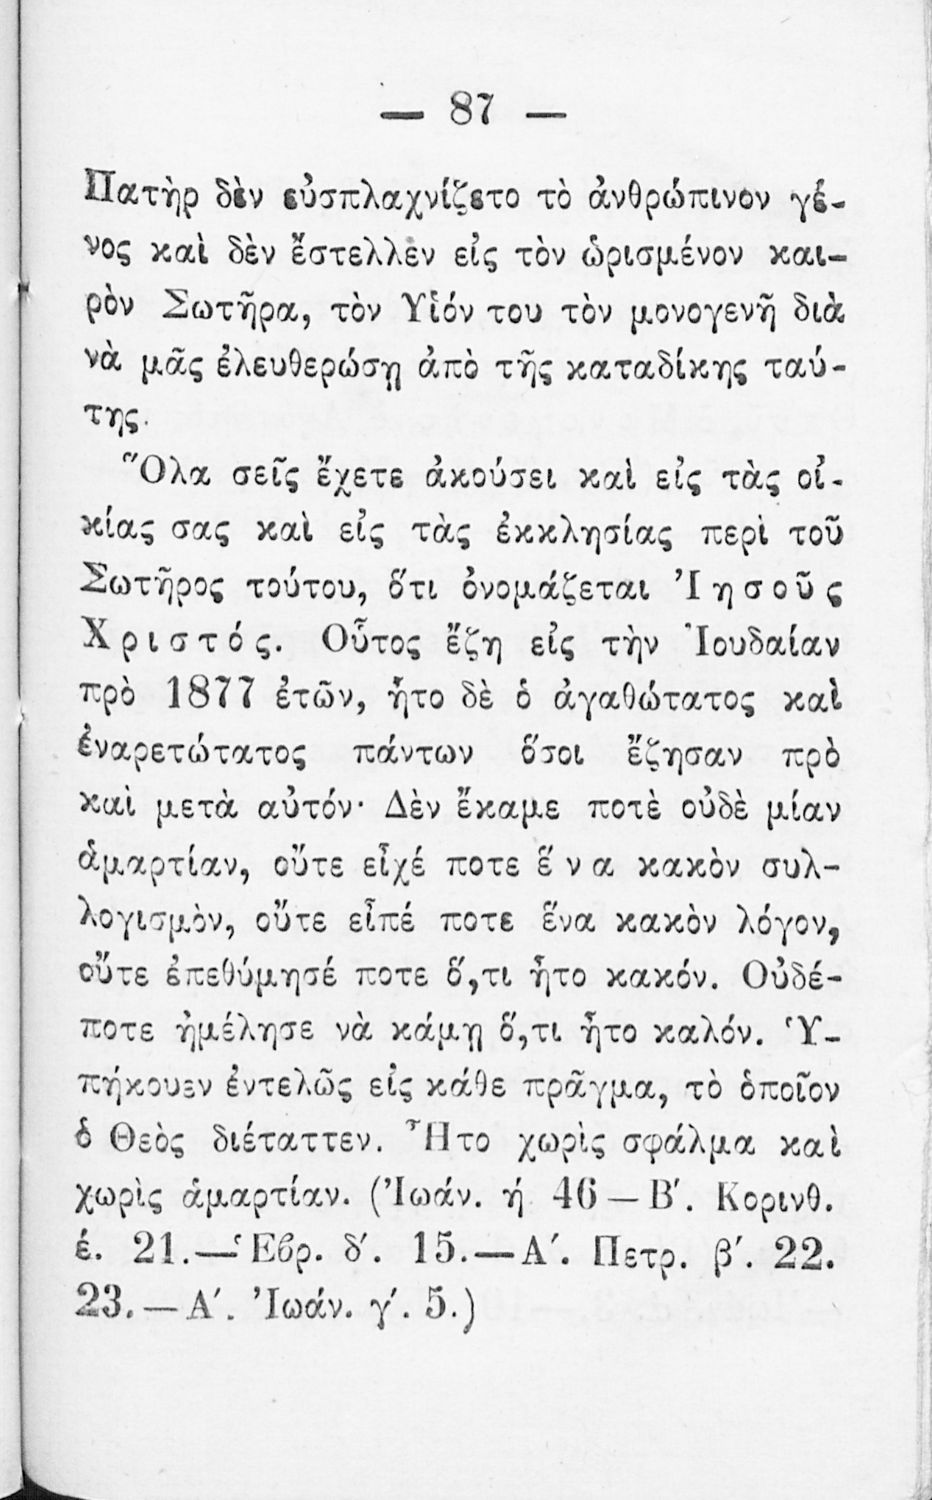 — 87 —
Πατὴρ δὲν εὐσπλαχνίζετο τὸ ἀνθρώπινον γέ-
νος καὶ δὲν ἔστελλεν εἰς τὸν ὡρισμένον και-
ρὸν Σωτῆρα, τὸν Υἱόν του τὸν μονογενῆ διὰ
νὰ μᾶς ἐλευθερώσῃ ἀπὸ τῆς καταδίκης ταύ-
της.
Ὅλα σεῖς ἔχετε ἀκούσει καὶ εἰς τὰς οἰ-
κίας σας καὶ εἰς τὰς ἐκκλησίας περὶ τοῦ
Σωτῆρος τούτου, ὅτι ὀνομάζεται Ἰησοῦς
Χριστός. Οὗτος ἔζη εἰς τὴν Ἰουδαίαν
πρὸ 1877 ἐτῶν, ἦτο δὲ ὁ ἀγαθώτατος καὶ
ἐναρετώτατος πάντων ὅσοι ἔζησαν πρὸ
καὶ μετὰ αὐτόν· Δὲν ἔκαμε ποτὲ οὐδὲ μίαν
ἁμαρτίαν, οὔτε εἶχέ ποτε ἕνα κακὸν συλ-
λογισμὸν, οὔτε εἶπέ ποτε ἕνα κακὸν λόγον,
οὔτε ἐπεθύμησέ ποτε ὅ,τι ἦτο κακόν. Οὐδέ-
ποτε ἠμέλησε νὰ κάμῃ ὅ,τι ἦτο καλόν. Ὑ-
πήκουεν ἐντελῶς εἰς κάθε πρᾶγμα, τὸ ὁποῖον
ὁ Θεὸς διέταττεν. Ἦτο χωρὶς σφάλμα καὶ
χωρὶς ἁμαρτίαν. (Ἰωάν. ή 46 — Β΄. Κορινθ.
έ. 21.—Ἑβρ. δ΄. 15.—Α΄. Πετρ. β΄. 22.
23.—Α΄. Ἰωάν. γ΄. 5.)